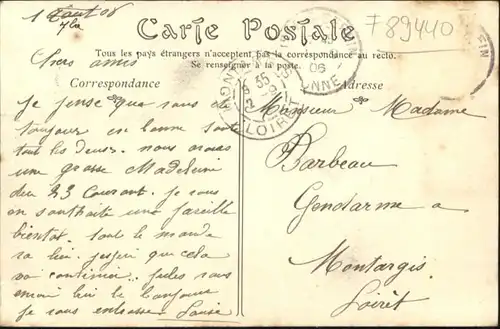 1 Aout 06
Carte Postale
F 89440
Tous les pays étrangers n'acceptent pas la correspondance au recto.
Se renseigner à la poste.
Chers amis
Correspondance
Adresse
Je pense que vous etes
toujours en bonne santé
tout les deux. nous avons
une grosse Madeleine
du 23 Courant. je vous
en souhaite une pareille
bientot. tout le monde
va bien. j'espere que cela
va continuer. Jules vous
envoie bien le bonjour
Je vous embrasse Louise
Monsieur Madame
Barbeau
Gendarme a
Montargis
Loirêt
LOIRET
06